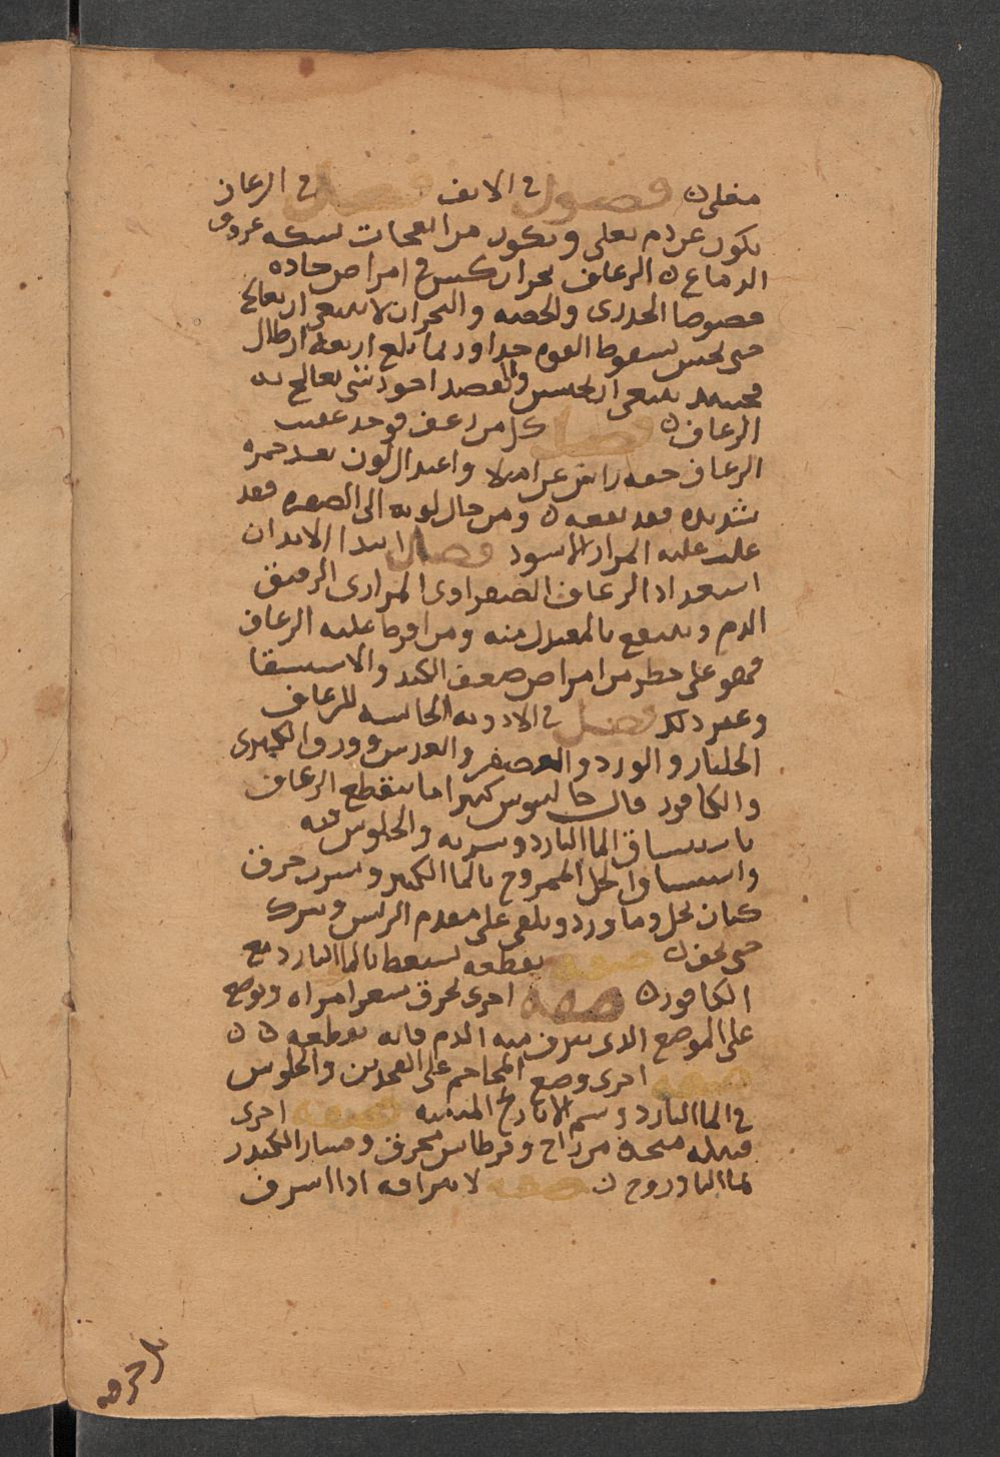 مغلى ں فصول فى الانف فصل فى الرعاف
يكون عن دم يغلى ويكون من انفجات شبكه عروق
الدماغ ں الرعاف بحران كبير فى امراض حاده
خصوصا الجدرى والحصبه والبحران لا ينبغى ان يعالج
حتى يحس بسقوط القوه جدا وربما بلغ اربعة ارطال
فحينيد ينبغى ان يحبس والفصد اجود شى يعالج به
الرعاف ں فصل كل من رعف فوجد عقيب
الرعاف خفه راس عن امتلا واعتدال لون بعد حمره
شديده فقد نفعه ں ومن حال لونه الى الصفره فقد
غلب عليه المرار الاسود فصل اشد الابدان
استعداد الرعاف الصفراوى المرارى الرقيق
الدم وينتفع بالمعتدل منه ومن افرط عليه الرعاف
فهو على خطر من امراض ضعف الكبد والاستسقا
وغير ذلك فصل فى الادويه الحابسه للرعاف
الجلنار والورد والعصفر والعدس وورق الكمثرى
والكافور قال جالينوس كثيرا ما ينقطع الرعاف
باستنشاق الما البارد وشربه والجلوس فيه
واستنشاق الخل الممزوج بالما الكثير وتبرد خرق
كتان بخل وما ورد ويلقى على مقدم الراس ويترك
حتى يجف ں صفه يقطعه يسعط بالما البارد مع
الكافور ں صفه اخرى يحرق شعر امراه ويوضع
على الموضع الدى ينزف منه الدم فانه يقطعه ں ں
صفه اخرى وضع المحاجم على الفخدين والجلوس
فى الما البارد وشم الاراييح المنتنه صفه اخرى
فتيله متخده من زاج وقرطاس محرق وغبار الكندر
بما البادروج ں صفه لانبراقه ادا اسرف